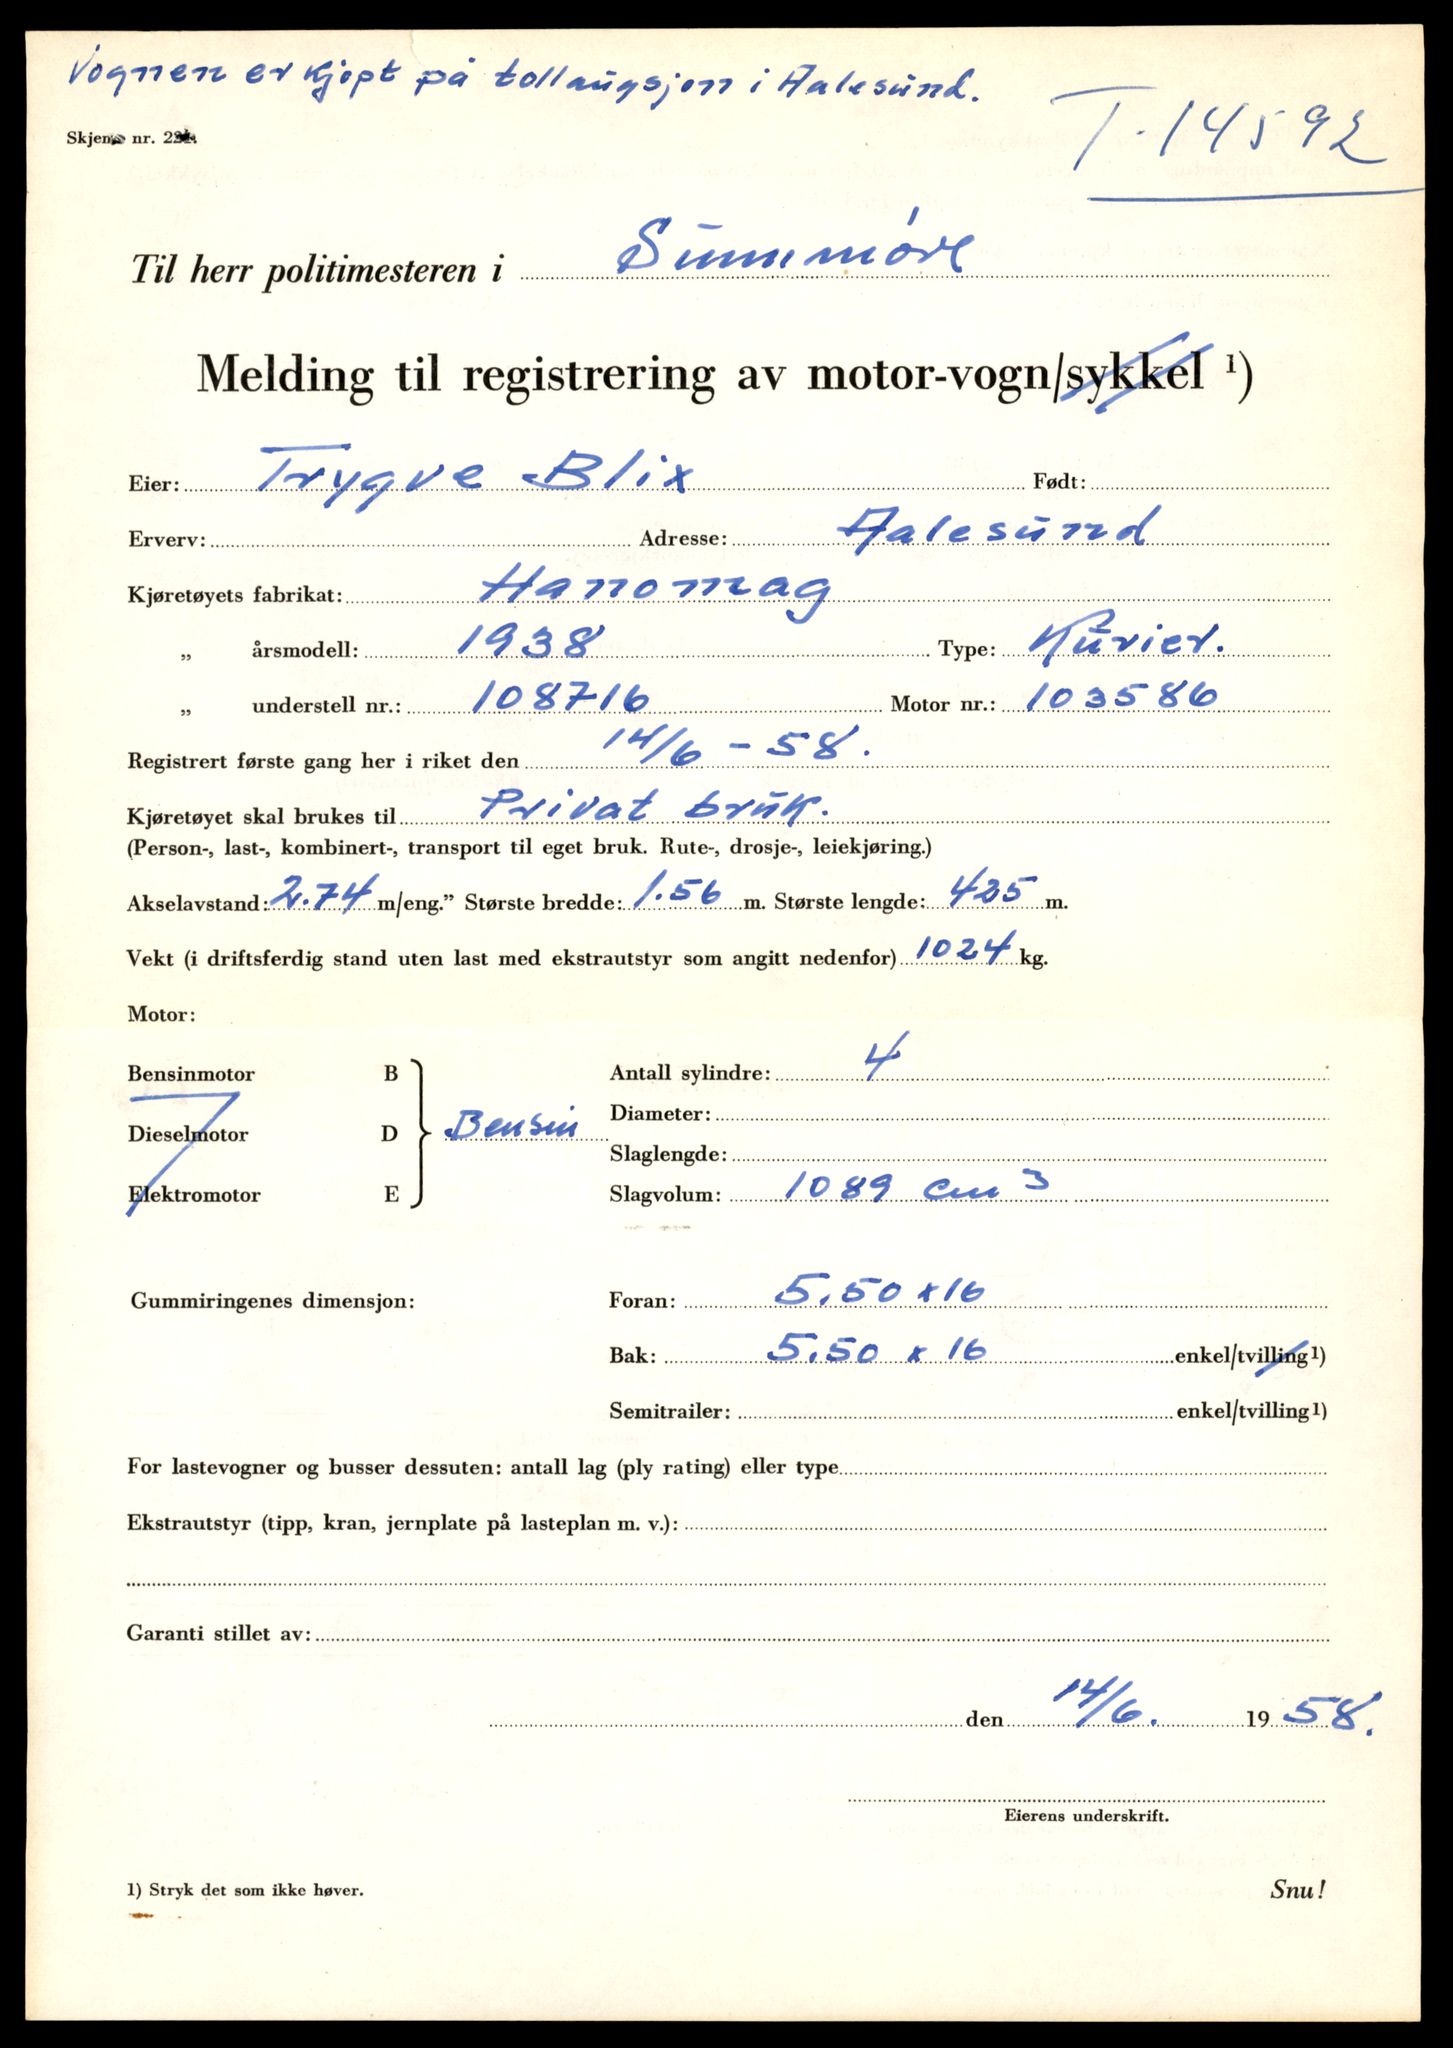 Vognen er kjøpt på tollaugsjon i Aalesund.
T-14592
Skjema nr. 
Til herr politimesteren i Sunnmøre
Melding til registrering av motor-vogn/sykkel 1)
Eier: Trygve Blix Født:
Erverv: Adresse: Aalesund
Kjøretøyets fabrikat: Hanomag
„ årsmodell: 1938 Type: Kurier.
„ understell nr.: 108716 Motor nr.: 103586
Registrert første gang her i riket den 14/6 - 58.
Kjøretøyet skal brukes til Privat bruk.
(Person-, last-, kombinert-, transport til eget bruk. Rute-, drosje-, leiekjøring.)
Akselavstand: 2.74 m/eng.” Største bredde: 1.56 m. Største lengde: 425 m.
Vekt (i driftsferdig stand uten last med ekstrautstyr som angitt nedenfor) 1024 kg.
Motor:
Bensinmotor B Antall sylindre: 4
Diameter:
Dieselmotor D Bensin
Slaglengde:
Elektromotor E Slagvolum: 1089 cm3
Gummiringenes dimensjon: Foran: 5.50 x 16
Bak: 5.50 x 16 enkel/tvilling 1)
Semitrailer: enkel/tvilling 1)
For lastevogner og busser dessuten: antall lag (ply rating) eller type
Ekstrautstyr (tipp, kran, jernplate på lasteplan m. v.):
Garanti stillet av:
den 14/6. 1958.
Eierens underskrift.
1) Stryk det som ikke høver.
Snu!